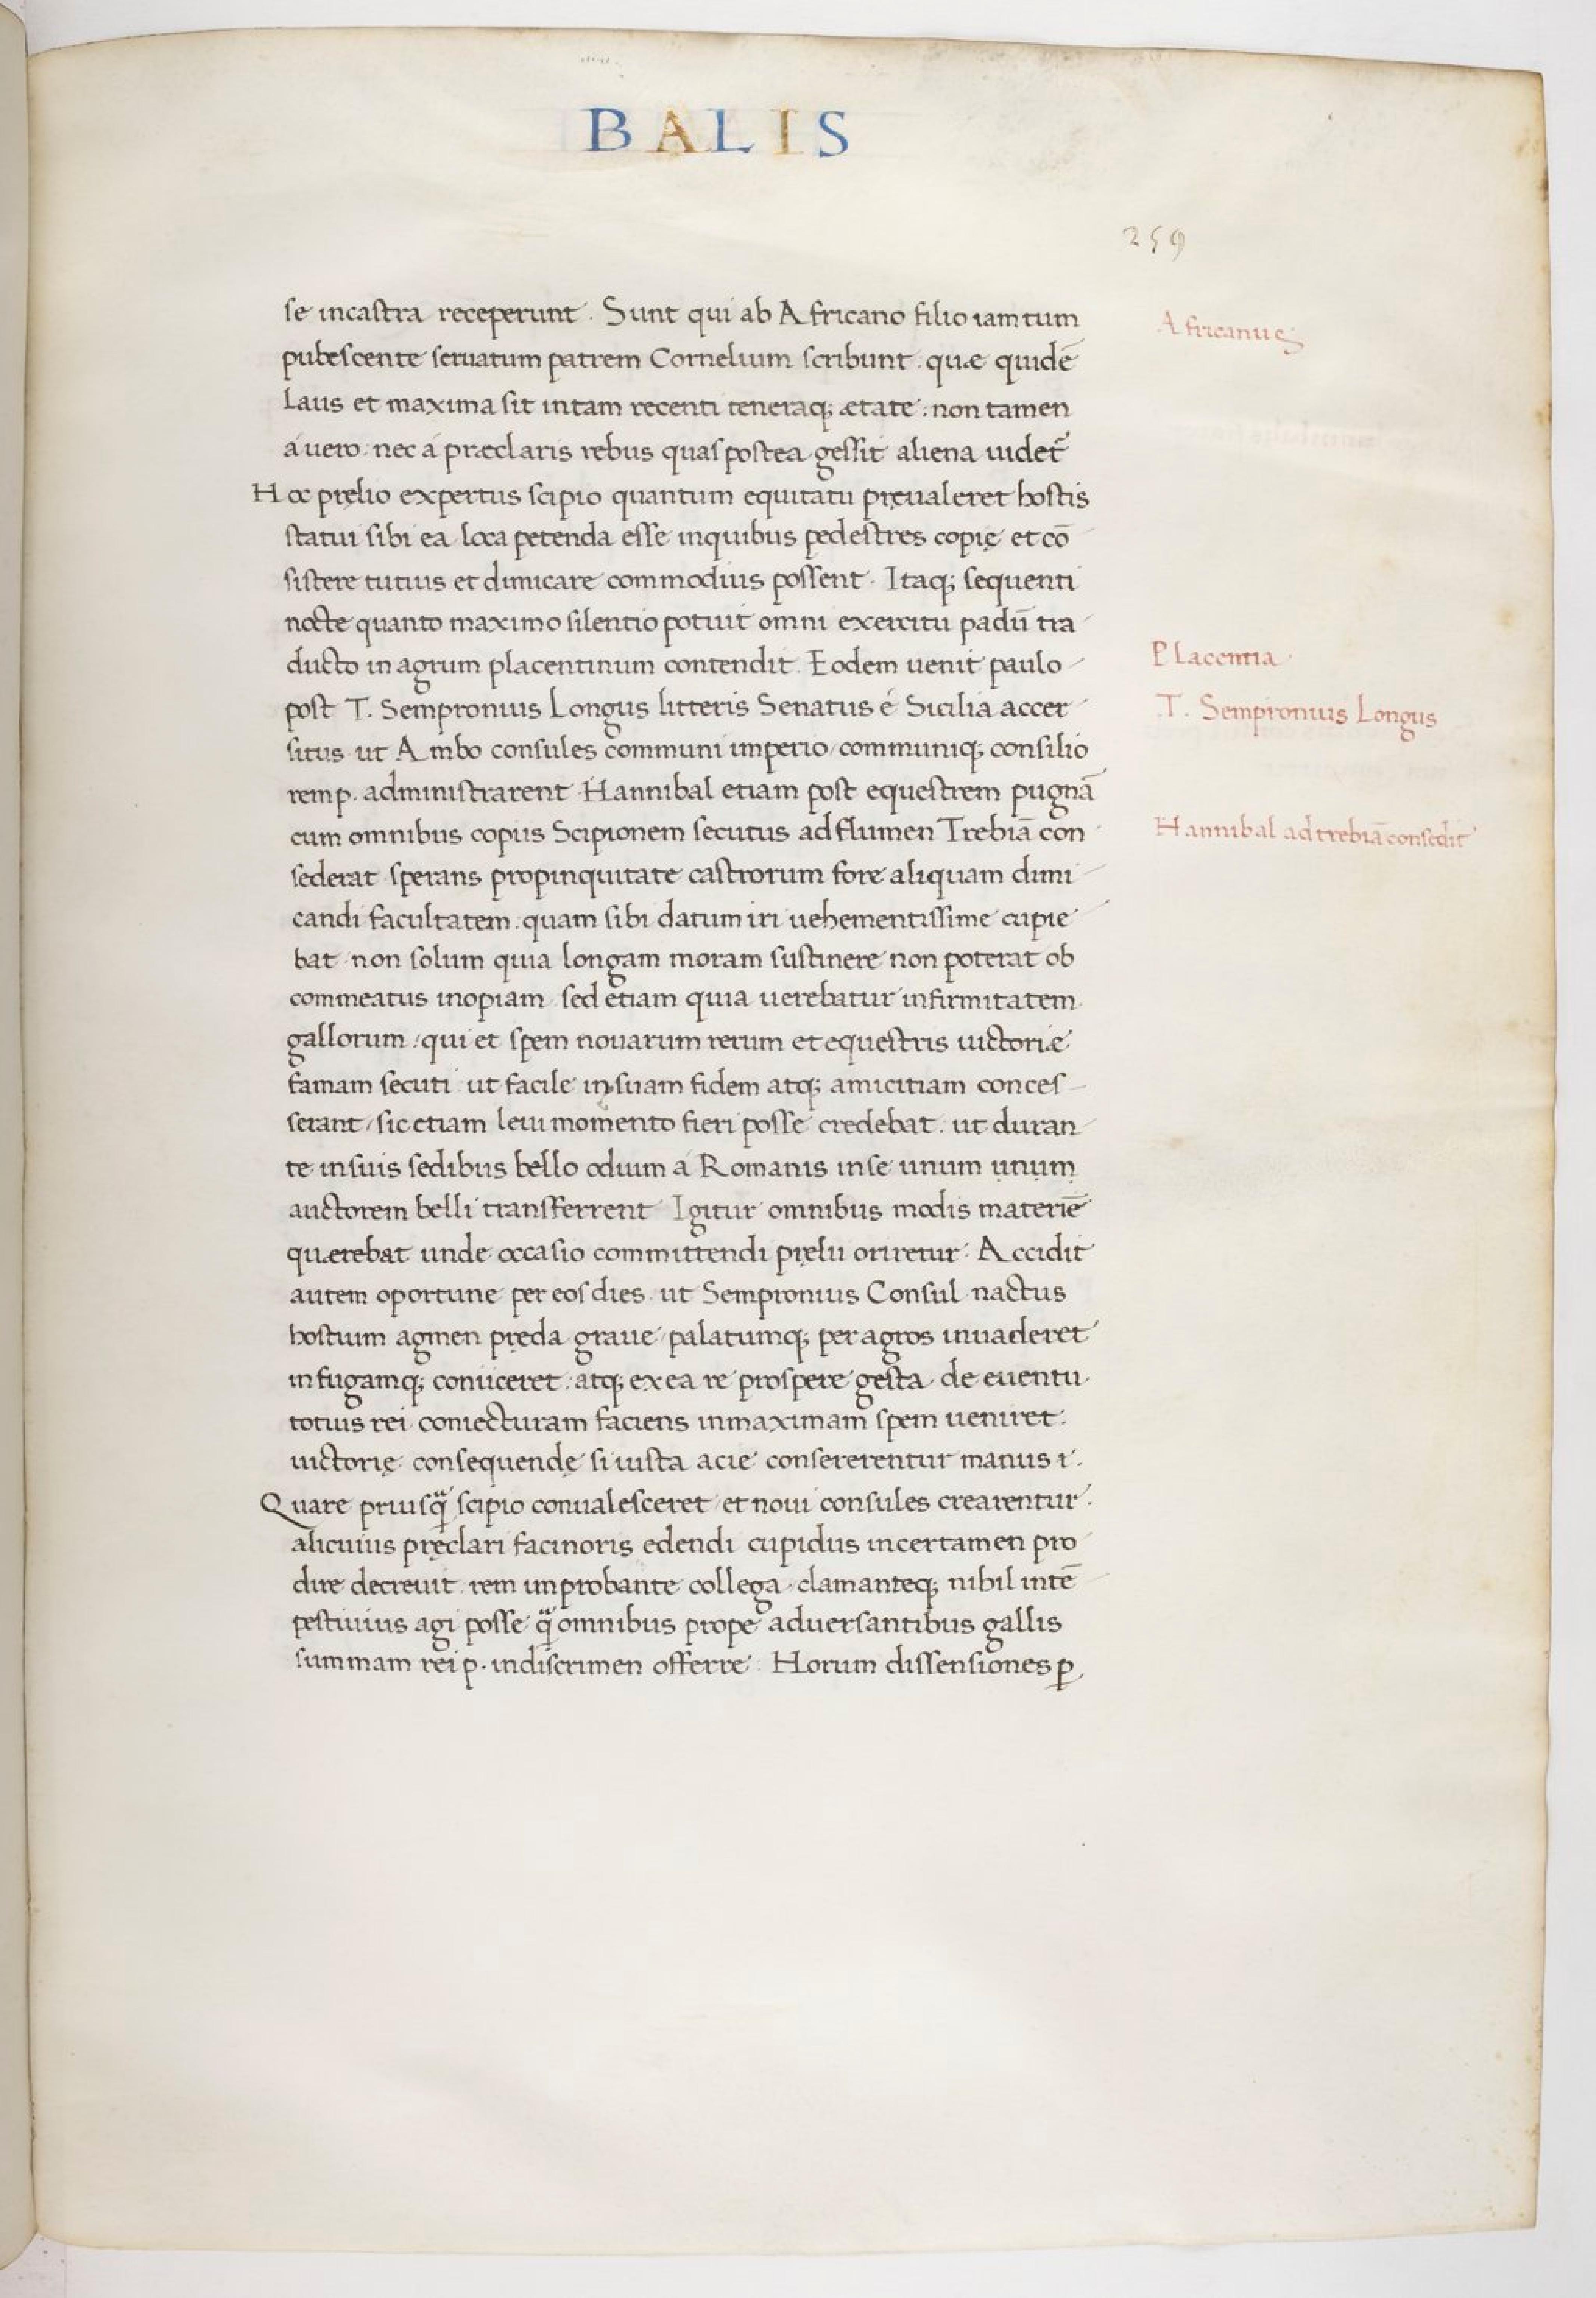 BALIS
259
se incastra receperunt. Sunt qui ab Africano filio iam tum
Africanus
pubescente seruatum patrem Cornelium scribunt: quæ quidē
Laus et maxima sit intam recenti teneraq; ætate: non tamen
á uero: nec á præclaris rebus quas postea gessit aliena uidet̃
Hoc pręlio expertus scipio quantum equitatu pręualeret hostis
statui sibi ea loca petenda esse inquibus pedestres copię et cō
sistere tutius et dimicare commodius possent. Itaq; sequenti
nocte quanto maximo silentio potuit omni exercitu padū tra
ducto in agrum placentinum contendit. Eodem uenit paulo
Placentia
post T. Sempronius Longus litteris Senatus é Sicilia accer
T. Sempronius Longus
situs ut Ambo consules communi imperio communiq; consilio
rem p. administrarent Hannibal etiam post equestrem pugnā
cum omnibus copiis Scipionem secutus ad flumen Trebiā con
Hannibal ad trebiā consedit
sederat sperans propinquitate castrorum fore aliquam dimi
candi facultatem: quam sibi datum iri uehementissime cupie
bat non solum quia longam moram sustinere non poterat ob
commeatus inopiam sed etiam quia uerebatur infirmitatem
gallorum: qui et spem nouarum rerum et equestris uictoriæ
famam secuti ut facile in suam fidem atq; amicitiam conces
serant, sic etiam leui momento fieri posse credebat. ut duran
te in suis sedibus bello odium á Romanis inse unum unum
auctorem belli transferrent Igitur omnibus modis materiē
quærebat unde occasio committendi pręlii oriretur: Accidit
autem oportune per eos dies ut Sempronius Consul nactus
hostium agmen pręda graue palatumq; per agros inuaderet
in fugamq; coniiceret: atq; ex ea re prospere gesta de euentu
totius rei coniecturam faciens inmaximam spem ueniret:
uictorię consequendę si iusta acie consererentur manus
Quare priusq̃ scipio conualesceret et noui consules crearentur.
alicuius pręclari facinoris edendi cupidus incertamen pro
dire decreuit rem improbante collega clamanteq; nihil intē
pestiuius agi posse q̃ omnibus prope aduersantibus gallis
summam rei p. indiscrimen offerre. Horum dissensiones ꝑ